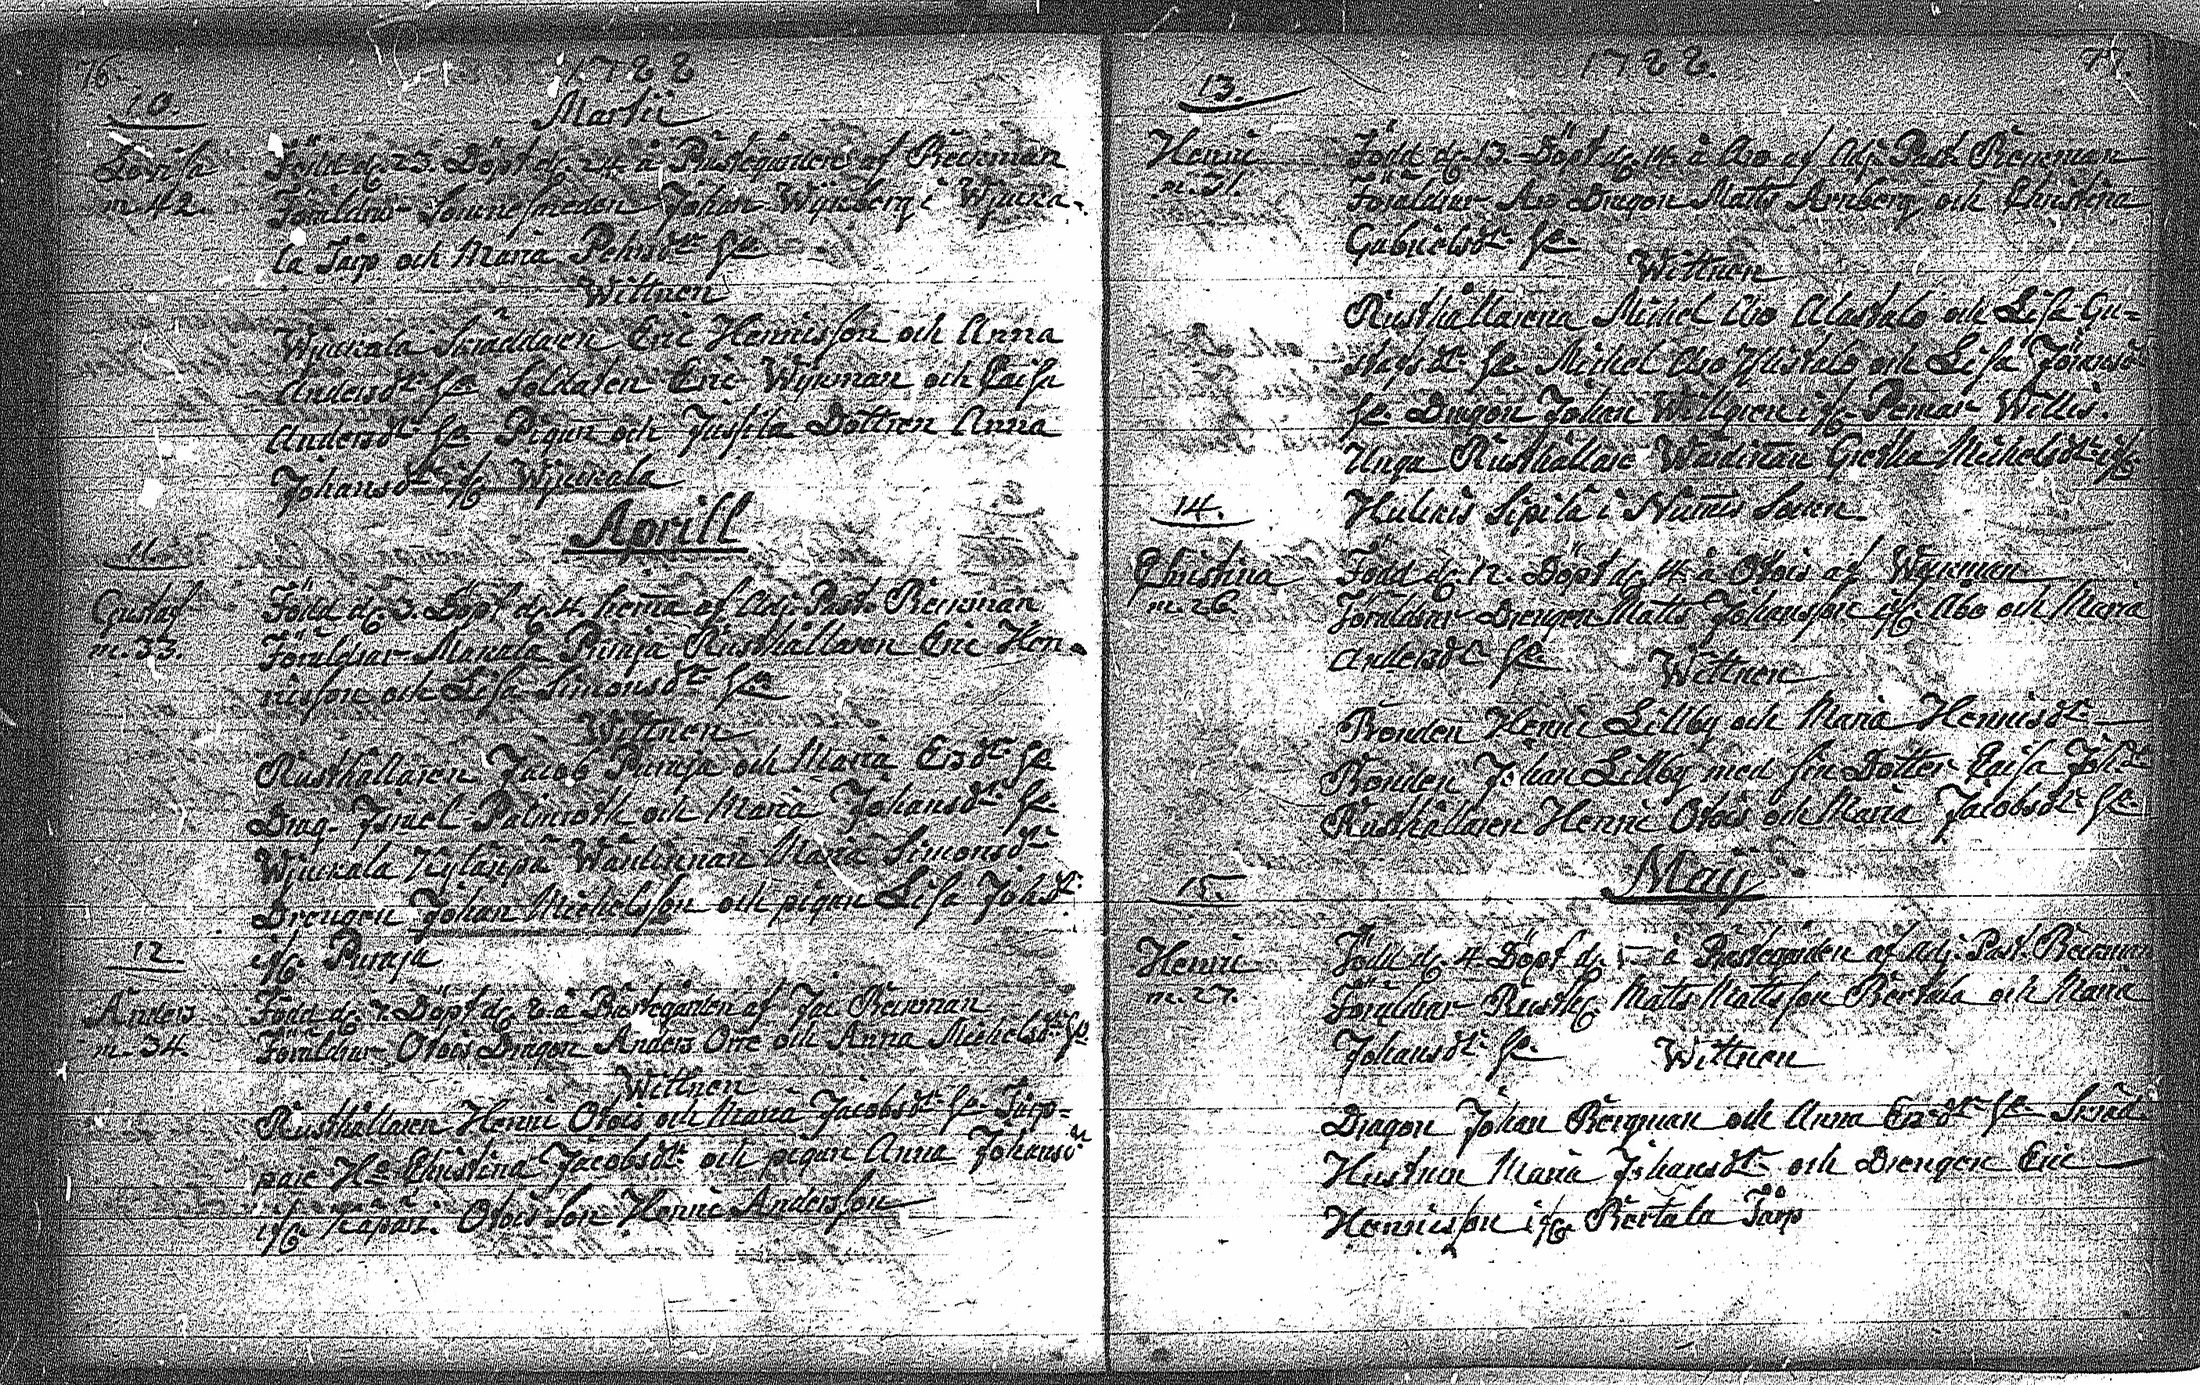 76.
1788
Martii
10.
Lovisa
m. 42.
Född d. 23. Döpt d. 24 å Prästegården af Reinman
Föräldrar Johan Wijkberg i Wjucka-
la Tårp och Maria Pehrsdtr
Wittnen
Wjuckala Skräddaren Eric Hennisson och Anna
Andersdtr Soldaten Eric Wijkman och Caisa
Andersdtr Pigan och Jussila Dottren Anna
Johansdtr Wjuckala
Aprill
11.
Gustaf
m. 33.
Född d. 3. Döpt d. 4. hema af Adj. Past. Reinman
Föräldrar Manala Puraja Rusthållaren Eric Hen-
nisson och Lisa Simonsdtr
Wittnen
Rusthållaren Jacob Puraja och Maria Ersdtr
Drag. Palmroth och Maria Johansdtr
Wjuckala Kylänpä Wärdinnan Maria Simonsdtr
Drengen Johan Michelsson och pigan Lisa Johsdtr
Puraja
12.
Anders
m. 34.
Född d. 7. Döpt d. 8 å Prästegården af Jac Reinman
Föräldrar Otois Dragon Anders Orre och Anna Michelsdtr
Wittnen
Rusthållaren Henric Otois och Maria Jacobsdtr Tårp=
pare Christina Jacobsdtr och pigan Anna Johansdr
Otois Son Henric Andersson
1788.
77.
13.
Henric
m. 31.
Född d. 13. Döpt d. 14. å Aso af Adj. Past. Reinman
Föräldrar Aso Dragon Matts Arnberg och Christina
Gabrielsdtr
Wittnen
Rusthållarena Michel Aso Alastalo och Lisa Gu=
stafsdtr Michel Aso Ylistalo och Lisa Göransdr
Dragon Johan Willgren Pemar Willis.
Unga Rusthållare Wärdinan Gretha Michelsdtr
Sipilä i Numis Sokn
14.
Christina
m. 26.
Född d. 12. Döpt d. 14. å Otois af Wijkman
Föräldrar Drengen Matts Johansson Aso och Maria
Andersdtr
Wittnen
Bonden Henric Lillby och Maria Hennisdtr
Bonden Johan Lillby med sin Dotter Caisa Joh.dr
Rusthållaren Henric Otois och Maria Jacobsdtr
Maij
15.
Henric
m. 27.
Född d. 4 Döpt d. 5 å Prästegården af Adj. Past. Reinman
Föräldrar Rusth. Matts Mattsson Pertala och Maria
Johansdtr
Wittnen
Dragon Johan Bergman och Anna Ersdtr Skräd.
Hustrun Maria Johansdtr och Drengen Eric
Hennicsson Pertala Tårp